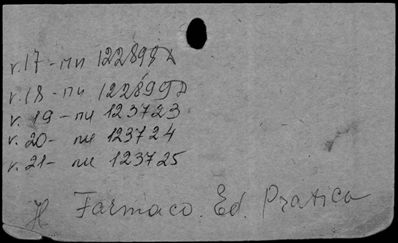 v. 17 - пи 122898д
v. 18 - пи 122899д
v. 19 - пи 123723
v. 20 - пи 123724
v. 21 - пи 123725
Farmaco. Ed. Pratica